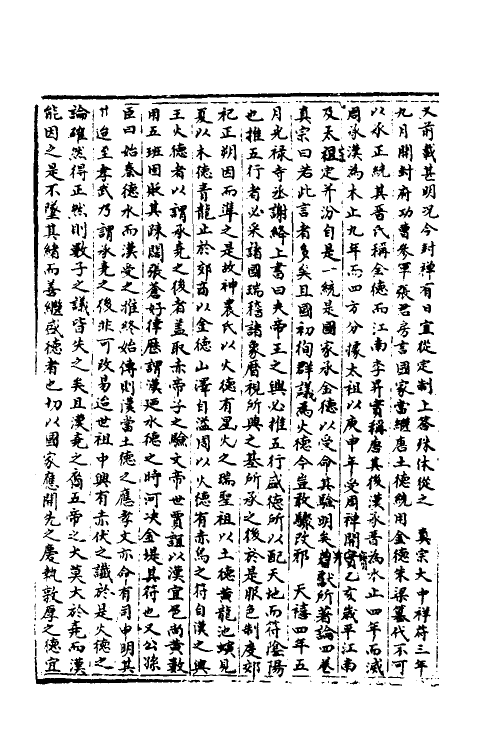 文前載甚明况今封禪有日宜從定制上答殊休從之　真宗大中祥符三年
九月開封府功曹參軍張君房言國家當繼唐土德統用金德朱梁篡代不可
以承正統其晉氏稱金德而江南李昪實稱唐其後漢承晉為水止四年而滅
周承漢為木止九年而四方分據太祖以庚申年受周禪開寶乙亥歲平江南
及天祖定并汾自是一統是國家承金德以受命其驗明矣因獻所著論四卷
真宗曰若此言者多矣且國初徇群議為火德今豈敢驟改邪　天禧四年五
月光祿寺丞謝絳上書曰夫帝王之興必推五行盛德所以配天地而符陰陽
也推五行者必采諸國瑞稽諸象曆視所興之基所承之後於是服色制度郊
祀正朔因而準之是故神農氏以火德有星火之瑞聖祖以土德黃龍地螾見
夏以木德青龍止於郊商以金德山澤自溢周以火德有赤烏之符自漢之興
王火德者以謂承堯之後者蓋取赤帝子之驗文帝世賈誼以漢宜色尚黃數
用五班固貶其疎闊張蒼好律歷謂漢廼水德之時河决金堤其符也又公孫
臣曰始秦德水而漢受之推終始傳則漢當土德之應孝文亦命有司申明其
廾迨至孝武乃謂承堯之後非可改易迨世祖中興有赤伏之識於是火德之
論確然得正然則數子之議寄失之矣且漢堯之裔五帝之大莫大於堯而漢
能因之是不墜其緒而善繼盛德者也切以國家應開先之慶執敦厚之德宜